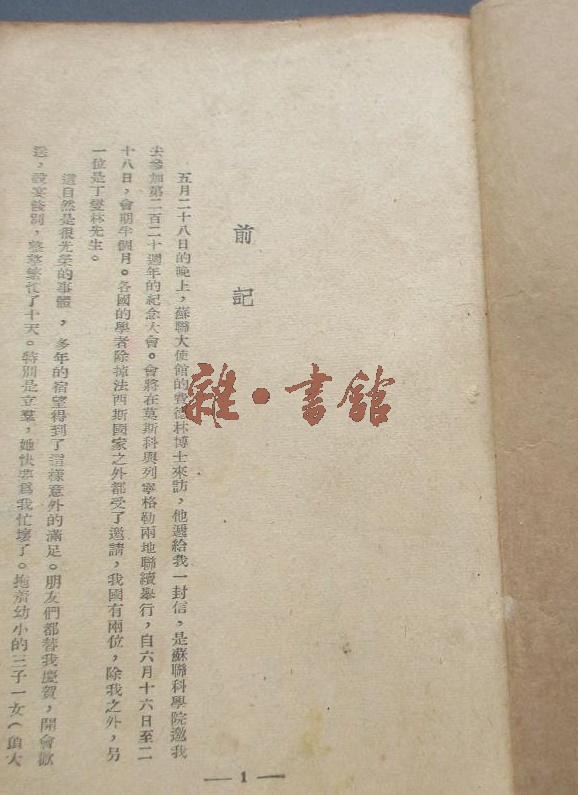 前記
五月二十八日的晚上，蘇聯大使館的費德林博士來訪，他遞給我一封信，是蘇聯科學院邀我
去參加第二百二十週年的紀念大會。會將在莫斯科與列寧格勒兩地聯續舉行，自六月十六日至二
十八日，會期半個月。各國的學者除掉法西斯國家之外都受了邀請，我國有兩位，除我之外，另
一位是丁燮林先生。
這自然是很光榮的事體，多年的宿望得到了這樣意外的滿足。朋友們都替我慶賀，開會歡
送，設宴餞別，整整繁忙了十天。特別是立羣，她快要爲我忙壞了。拖着幼小的三子一女（頂大
— 1 —
雜·書館